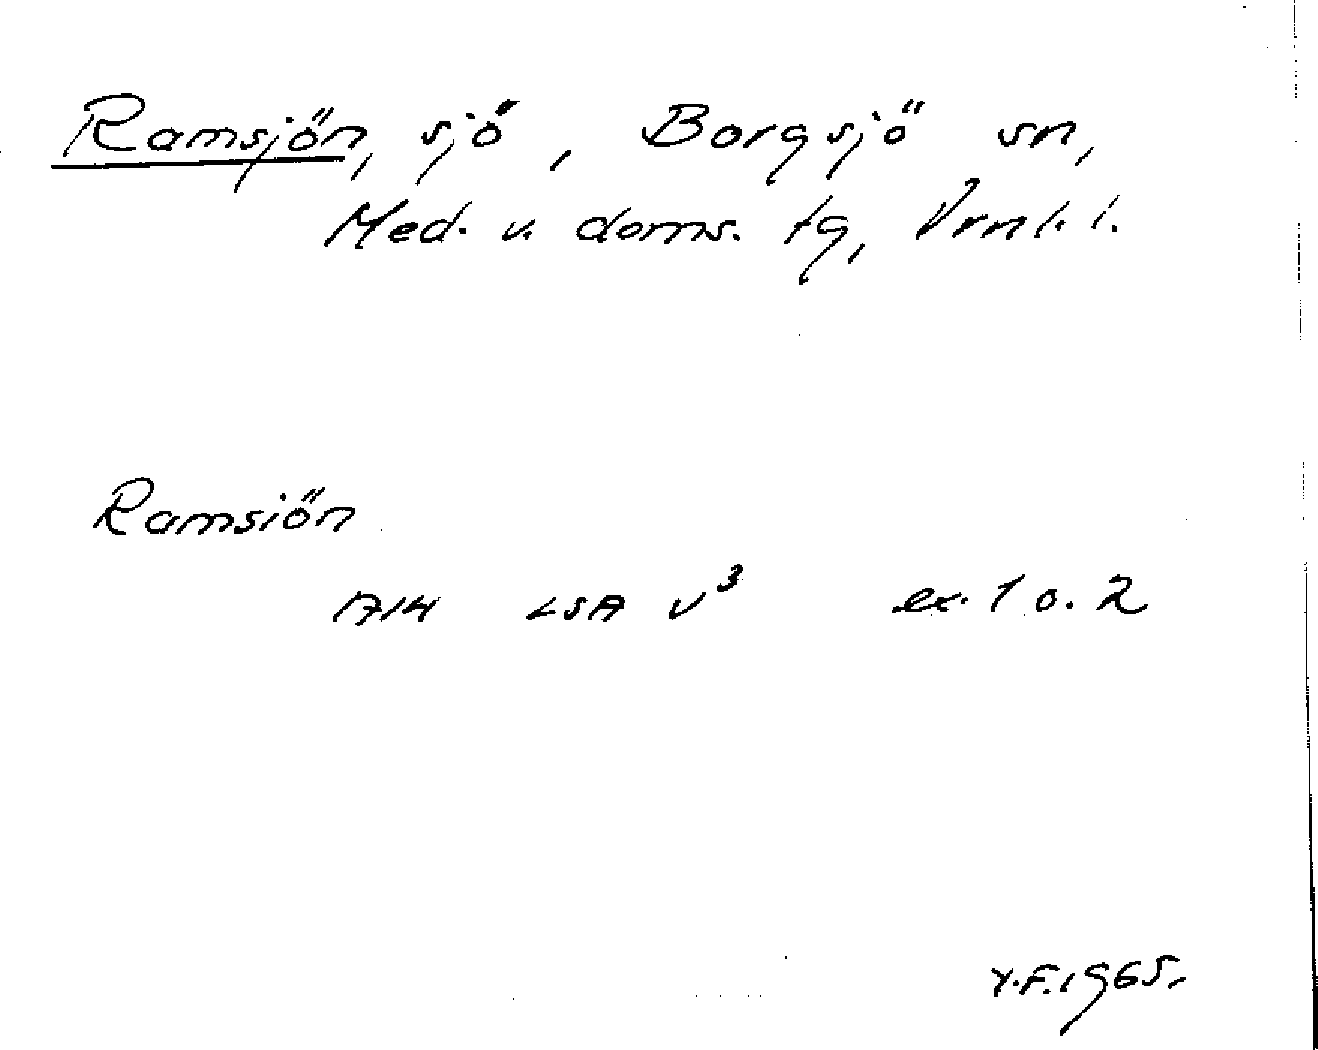 Ramsjön, sjö, Borgsjö sn,
Med. v. doms. tg, Vrnl. l.
Ramsiön
1714 LSA v³ ex. 1 o. 2
Y.F. 1965.